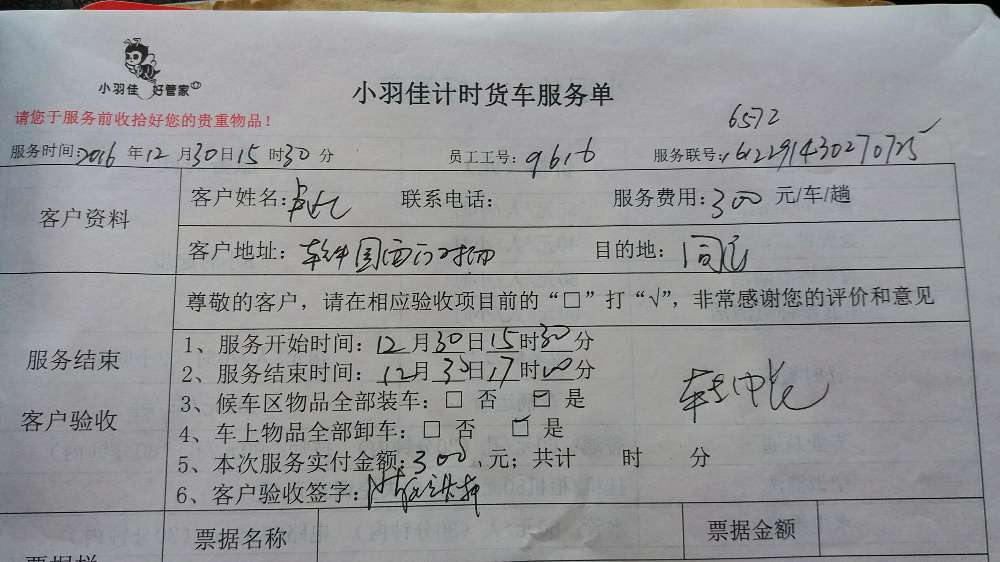 小羽佳 好管家
小羽佳计时货车服务单
请您于服务前收拾好您的贵重物品！
6572
服务时间:2016 年12 月30日15 时30 分 员工工号:9616 服务联号:1612291430270725
客户资料
客户姓名: 联系电话: 服务费用:300 元/车/趟
客户地址:软件园 目的地:同安
尊敬的客户，请在相应验收项目前的“□”打“√”，非常感谢您的评价和意见
服务结束
客户验收
1、服务开始时间:12月30日15时30分
2、服务结束时间:12月30日17时00分
3、候车区物品全部装车:□ 否 ☑ 是
4、车上物品全部卸车:□ 否 ☑ 是
5、本次服务实付金额:300 元；共计 时 分
6、客户验收签字:
票据栏
票据名称 票据金额